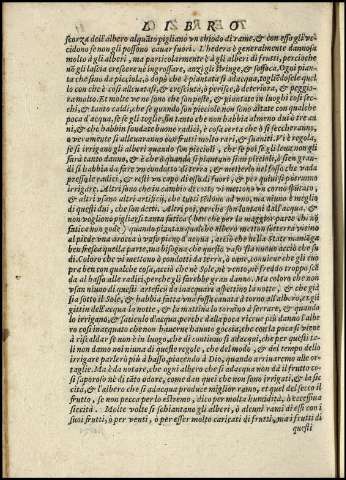 LO IS BA RA OT
scorza dell'albero alquãto pigliano vn chiodo di rame, & con esso gli vc-
cidono se non gli possono cauar fuori. L'hedera è generalmente dannosa
molto à gli alberi, ma particolarmente è à gli alberi di frutti, perciòche
nõ gli lascia crescere nè ingrossare, anzi gli stringe, & soffoca. Ogni pian-
ta che sino da picciola, ò dopò che è piantata si adacqua, togliẽdosele quel
lo con che è così alleuatasi, & cresciuta, ò perisce, ò deteriora, & peggio-
ra molto. Et molte ve ne sono che son poste, & piantate in luoghi così sec-
chi, & tanto caldi, che se quando son picciole non sono aitate con qualche
poca d'acqua, se se gli toglie, fin tanto che non habbia almeno dui ò tre an
ni, & che habbin fondate buone radici, è cosa certa che ò si seccheranno,
ò veramente si alleueranno con frutti molto rari, & suaniti. Vi è regola,
se si irrigano gli alberi quando son piccioli, che se poi se gli leua non gli
farà tanto danno, & è che ò quando si piantano sian piccioli, ò sien gran-
di si habbia da fare vn condotto di terra, & metterlo nel fosso che vada
presso le radici, & resti vn capo di essi di fuori, & per quiui si potranno
irrigare. Altri sono che in cambio di cotto vi mettono vn corno spũtato,
& altri vsano altri artificij, che tutti tendono ad vno, ma niuno è meglio
di questi dui, che ho detti. Altri poi, perche son lontani dall'acqua, &
non vogliono pigliarsi tanta fatica (benche per la maggior parte chi nõ
fatica non gode) quando piantano l'albero metton sotterra vicino
al piede vna arocta ò vaso pieno d'acqua, acciò che nella State mantẽga
ben fresca quella parte, ma bisogna che questo vaso stia turato acciò che su
di. Coloro che vi mettono ò condotti da terra, ò corna, conuiene che gli cuo
pra ben con qualche cosa, acciò che nè Sole, nè vento, nè freddo troppo scẽ
da da basso alle radici, perche gli farebbe gran danno. Ma coloro che non
vsan niuno di questi artificij da inacquare aspettino la notte, & che già
sia sotto il Sole, & habbia fatta vna fossa cauata à torno all'albero, et gli
gittin dell'acqua la notte, & la mattina lo tornino à serrare, & quando
lo irrigano, & satiealo d'acqua, perche dalla poca riceue più danno l'albe
ro così inacquato che non hauerne hauuto goccia, che con la poca si viene
à riscaldar se non è in luogo, che di continuo si adacqui, che per questi ta-
li non damo noi niuna di queste regole, che del modo, & del tempo dello
irrigare parlerò più à basso, piacendo à Dio, quando arriueremo alle or-
taglie. Ma è da notare, che ogni albero che si adacqua non dà il frutto co-
sì saporoso nè di tãto odore, come dan quei che non sono irrigati, & la sic
cità, & l'albero che si adacqua produce miglior ramo, et quel del secco il
frutto, se non pecca per lo estremo, dico per molta humidità, ò eccessiua
siccità. Molte volte si schiantano gli alberi, ò alcuni rami di essi con i
suoi frutti, ò per venti, ò per esser molto caricati di frutti, ma i frutti di
questi